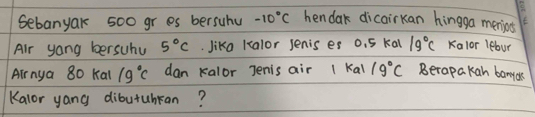 Sebanyak 500 gr es bersuhu -10°C hendak dicairkan hingga menjadi
Air yang bersuhu 5°C. Jika kalor jenis es 0,5 kal /g°C kalor lebur
Airnya 80 kal /g°C dan kalor Jenis air 1 kal /g°C Berapakah banyak
Kalor yang dibutuhkan ?